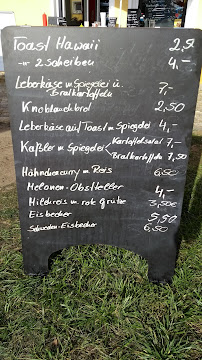 Toast Hawaii 2,50
-"- 2 Scheiben 4,-
Leberkäse m Spiegelei u.
Bratkartoffeln 7,-
Knoblauchbrot 2,50
Leberkäse auf Toast m Spiegelei 4,-
Kaßler m Spiegelei < Kartoffelsalat 7,-
Bratkartoffeln 7,50
Hähnchencurry m Reis 6,50
Melonen-Obstteller 4,-
Milchreis m rote Grütze 3,50€
Eisbecher 5,50
Schweden-Eisbecher 6,50